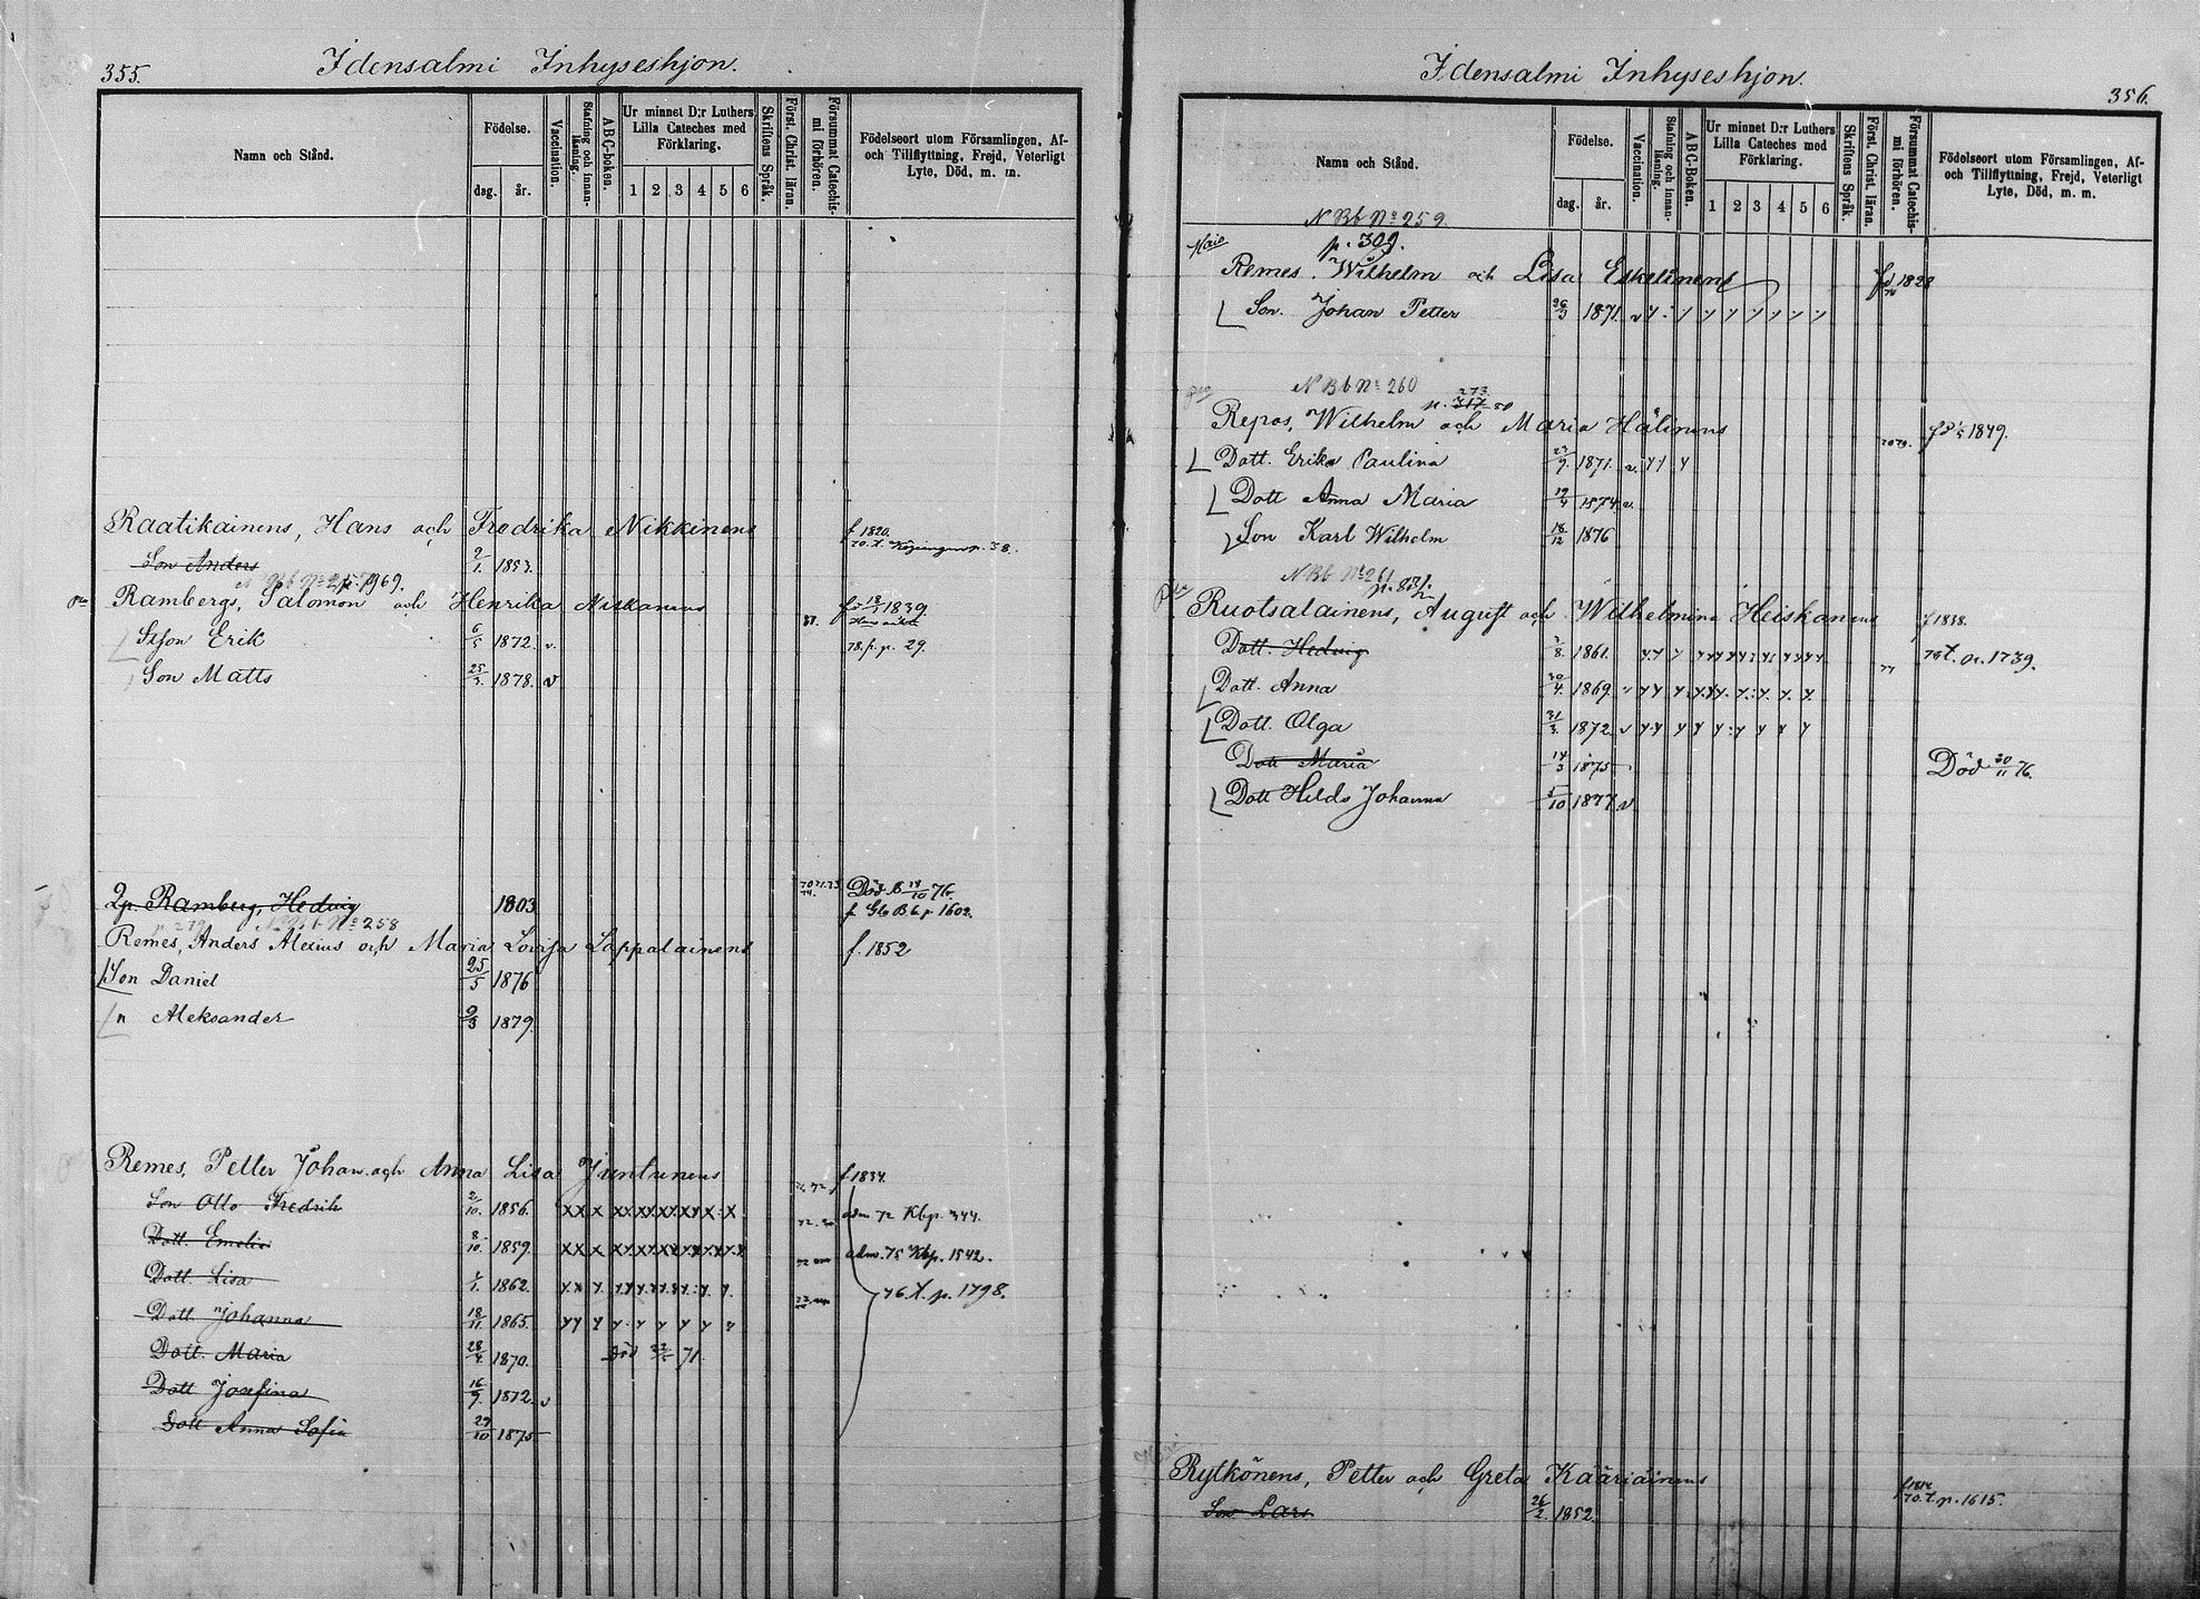 355.
Idensalmi Inhyseshjon.
Namn och Stånd.
Födelse.
dag.
år.
Vaccination.
Stafning och innan-läsning.
ABC-boken.
Ur minnet D:r Luthers Lilla Cateches med Förklaring.
1 2 3 4 5 6
Skriftens Språk.
Först. Christ. läran.
Försummat Catechis-mi förhören.
Födelseort utom Församlingen, Af- och Tillflyttning, Frejd, Veterligt Lyte, Död, m. m.
Raatikainens, Hans och Fredrika Nikkinens f. 1820.
Son Anders 9/1. 1853.
Rambergs, Salomon och Henrika Niskanens 1839.
Stson Erik 6/5 1872. v. 78. p. 29.
Son Matts 25/3. 1878. v
Qp. Ramberg, Hedvig 1803 Död 14/10 76.
p. 1602.
No 258
Remes, Anders Alexius och Maria Lovisa Lappalainens f. 1852
Son Daniel 25/5 1876
" Aleksander 9/3 1879.
Remes, Petter Johan och Anna Lisa Juntunens f. 1834.
Son Otto Fredrik 2/10. 1856. adm 72 Kbp. 344.
Dott. Emelie 8/10. 1859. adm. 75 Kbp. 1542.
Dott. Lisa 1/1. 1862. 76. t. p. 1798.
Dott. Johanna 18/11 1865.
Dott. Maria 28/4. 1870. Död 71.
Dott Josefina 16/9. 1872. v
Dott Anna Sofia 29/10 1875
Idensalmi Inhyseshjon.
356.
Namn och Stånd.
Födelse.
dag.
år.
Vaccination.
Stafning och innan-läsning.
ABC-Boken.
Ur minnet D:r Luthers Lilla Cateches med Förklaring.
1 2 3 4 5 6
Skriftens Språk.
Först. Christ. läran.
Försummat Catechis-mi förhören.
Födelseort utom Församlingen, Af- och Tillflyttning, Frejd, Veterligt Lyte, Död, m. m.
N Bb No 259.
p. 309.
Remes. Wilhelm och Lisa Eskelinens 1828
Son. Johan Petter 26/3 1871. v
N Bb No 260
273
p. 317
Repos, Wilhelm och Maria Hälinens 1849.
Dott. Erika Paulina 1871. v.
Dott Anna Maria 19/4 1874 v.
Son Karl Wilhelm 18/12 1876
N Bb No 261
Ruotsalainens, August och Wilhelmina Heiskanens f 1838.
Dott. Hedvig 1861. p. 1739.
Dott. Anna 30/4. 1869
Dott. Olga 31/3. 1872 v
Dott Maria 14/3 1875 Död 30/11 76.
Dott Hilda Johanna 5/10 1877 v
Rytkönens, Petter och Greta Kääriäinens
Son Lars 26/2. 1852. 70. t. p. 1615.